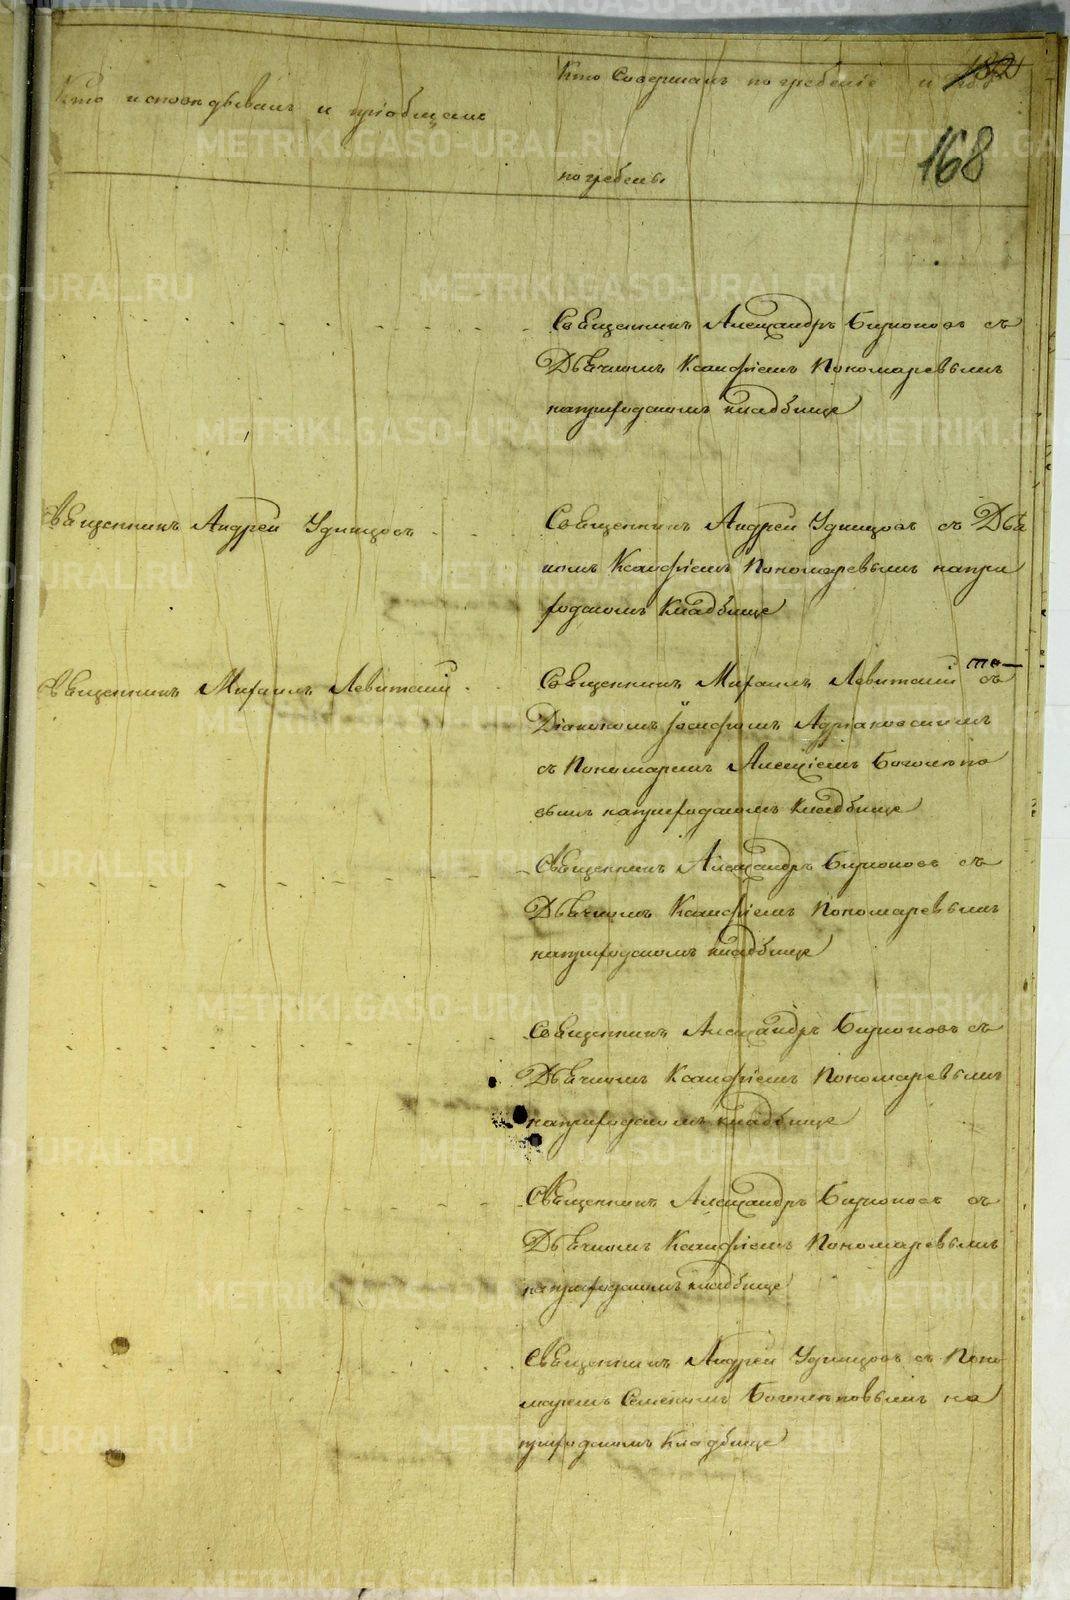 182
168
Кто исповѣдывалъ и пріобщалъ
Кто Совершалъ погребеніе и гдѣ
погребены
Священникъ Александръ Бирюковъ съ
Дьячкомъ Ксанфіемъ Пономаревымъ
наприходскомъ кладбище
Священникъ Андрей Удинцовъ
Священникъ Андрей Удинцовъ съ Дьяч
комъ Ксанфіемъ Пономаревымъ напри
ходскомъ Кладбище
Священникъ Михаилъ Левитскій
Священникъ Михаилъ Левитскій съ
Діакономъ Іосифомъ Адріановскимъ
съ Пономаремъ Алексіемъ Боголѣпо
вымъ наприходскомъ Кладбище
Священникъ Александръ Бирюковъ съ
Дьячкомъ Ксанфіемъ Пономаревымъ
наприходскомъ кладбище
Священникъ Александръ Бирюковъ съ
Дьячкомъ Ксанфіемъ Пономаревымъ
наприходскомъ кладбище
Священникъ Александръ Бирюковъ съ
Дьячкомъ Ксанфіемъ Пономаревымъ
наприходскомъ кладбище
Священникъ Андрей Удинцовъ съ Поно
маремъ Семеномъ Боголѣповымъ на
приходскомъ Кладбище
METRIKI.GASO-URAL.RU